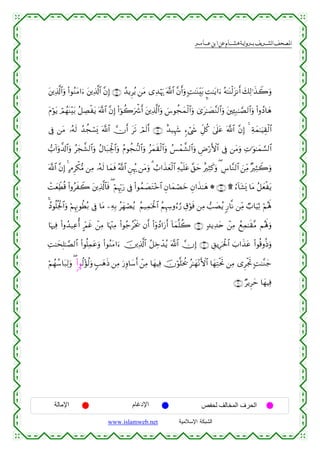 المصحف الشريف برواية هشام عن ابن عامر
وَكَذَٰلِكَ أَنزَلْنَٰهُ ءَايَٰتٍۭ بَيِّنَٰتٍ وَأَنَّ ٱللَّهَ يَهْدِى مَن يُرِيدُ ۝ إِنَّ ٱلَّذِينَ ءَامَنُوا۟ وَٱلَّذِينَ
هَادُوا۟ وَٱلصَّٰبِـِٔينَ وَٱلنَّصَٰرَىٰ وَٱلْمَجُوسَ وَٱلَّذِينَ أَشْرَكُوٓا۟ إِنَّ ٱللَّهَ يَفْصِلُ بَيْنَهُمْ يَوْمَ
ٱلْقِيَٰمَةِ ۚ إِنَّ ٱللَّهَ عَلَىٰ كُلِّ شَىْءٍ شَهِيدٌ ۝ أَلَمْ تَرَ أَنَّ ٱللَّهَ يَسْجُدُ لَهُۥ مَن فِى
ٱلسَّمَٰوَٰتِ وَمَن فِى ٱلْأَرْضِ وَٱلشَّمْسُ وَٱلْقَمَرُ وَٱلنُّجُومُ وَٱلْجِبَالُ وَٱلشَّجَرُ وَٱلدَّوَآبُّ
وَكَثِيرٌ مِّنَ ٱلنَّاسِ ۖ وَكَثِيرٌ حَقَّ عَلَيْهِ ٱلْعَذَابُ ۗ وَمَن يُهِنِ ٱللَّهُ فَمَا لَهُۥ مِن مُّكْرِمٍ ۚ إِنَّ ٱللَّهَ
يَفْعَلُ مَا يَشَآءُ ۩ ۝ هَٰذَانِ خَصْمَانِ ٱخْتَصَمُوا۟ فِى رَبِّهِمْ ۖ فَٱلَّذِينَ كَفَرُوا۟ قُطِّعَتْ
لَهُمْ ثِيَابٌ مِّن نَّارٍ يُصَبُّ مِن فَوْقِ رُءُوسِهِمُ ٱلْحَمِيمُ يُصْهَرُ بِهِۦ مَا فِى بُطُونِهِمْ وَٱلْجُلُودُ
وَلَهُم مَّقَٰمِعُ مِنْ حَدِيدٍ ۝ كُلَّمَآ أَرَادُوٓا۟ أَن يَخْرُجُوا۟ مِنْهَا مِنْ غَمٍّ أُعِيدُوا۟ فِيهَا
وَذُوقُوا۟ عَذَابَ ٱلْحَرِيقِ ۝ إِنَّ ٱللَّهَ يُدْخِلُ ٱلَّذِينَ ءَامَنُوا۟ وَعَمِلُوا۟ ٱلصَّٰلِحَٰتِ
جَنَّٰتٍ تَجْرِى مِن تَحْتِهَا ٱلْأَنْهَٰرُ يُحَلَّوْنَ فِيهَا مِنْ أَسَاوِرَ مِن ذَهَبٍ وَلُؤْلُؤٍ ۖ وَلِبَاسُهُمْ
فِيهَا حَرِيرٌ ۝
الحرف المخالف لحفص الإدغام الإمالة
الشبكة الإسلامية www.islamweb.net